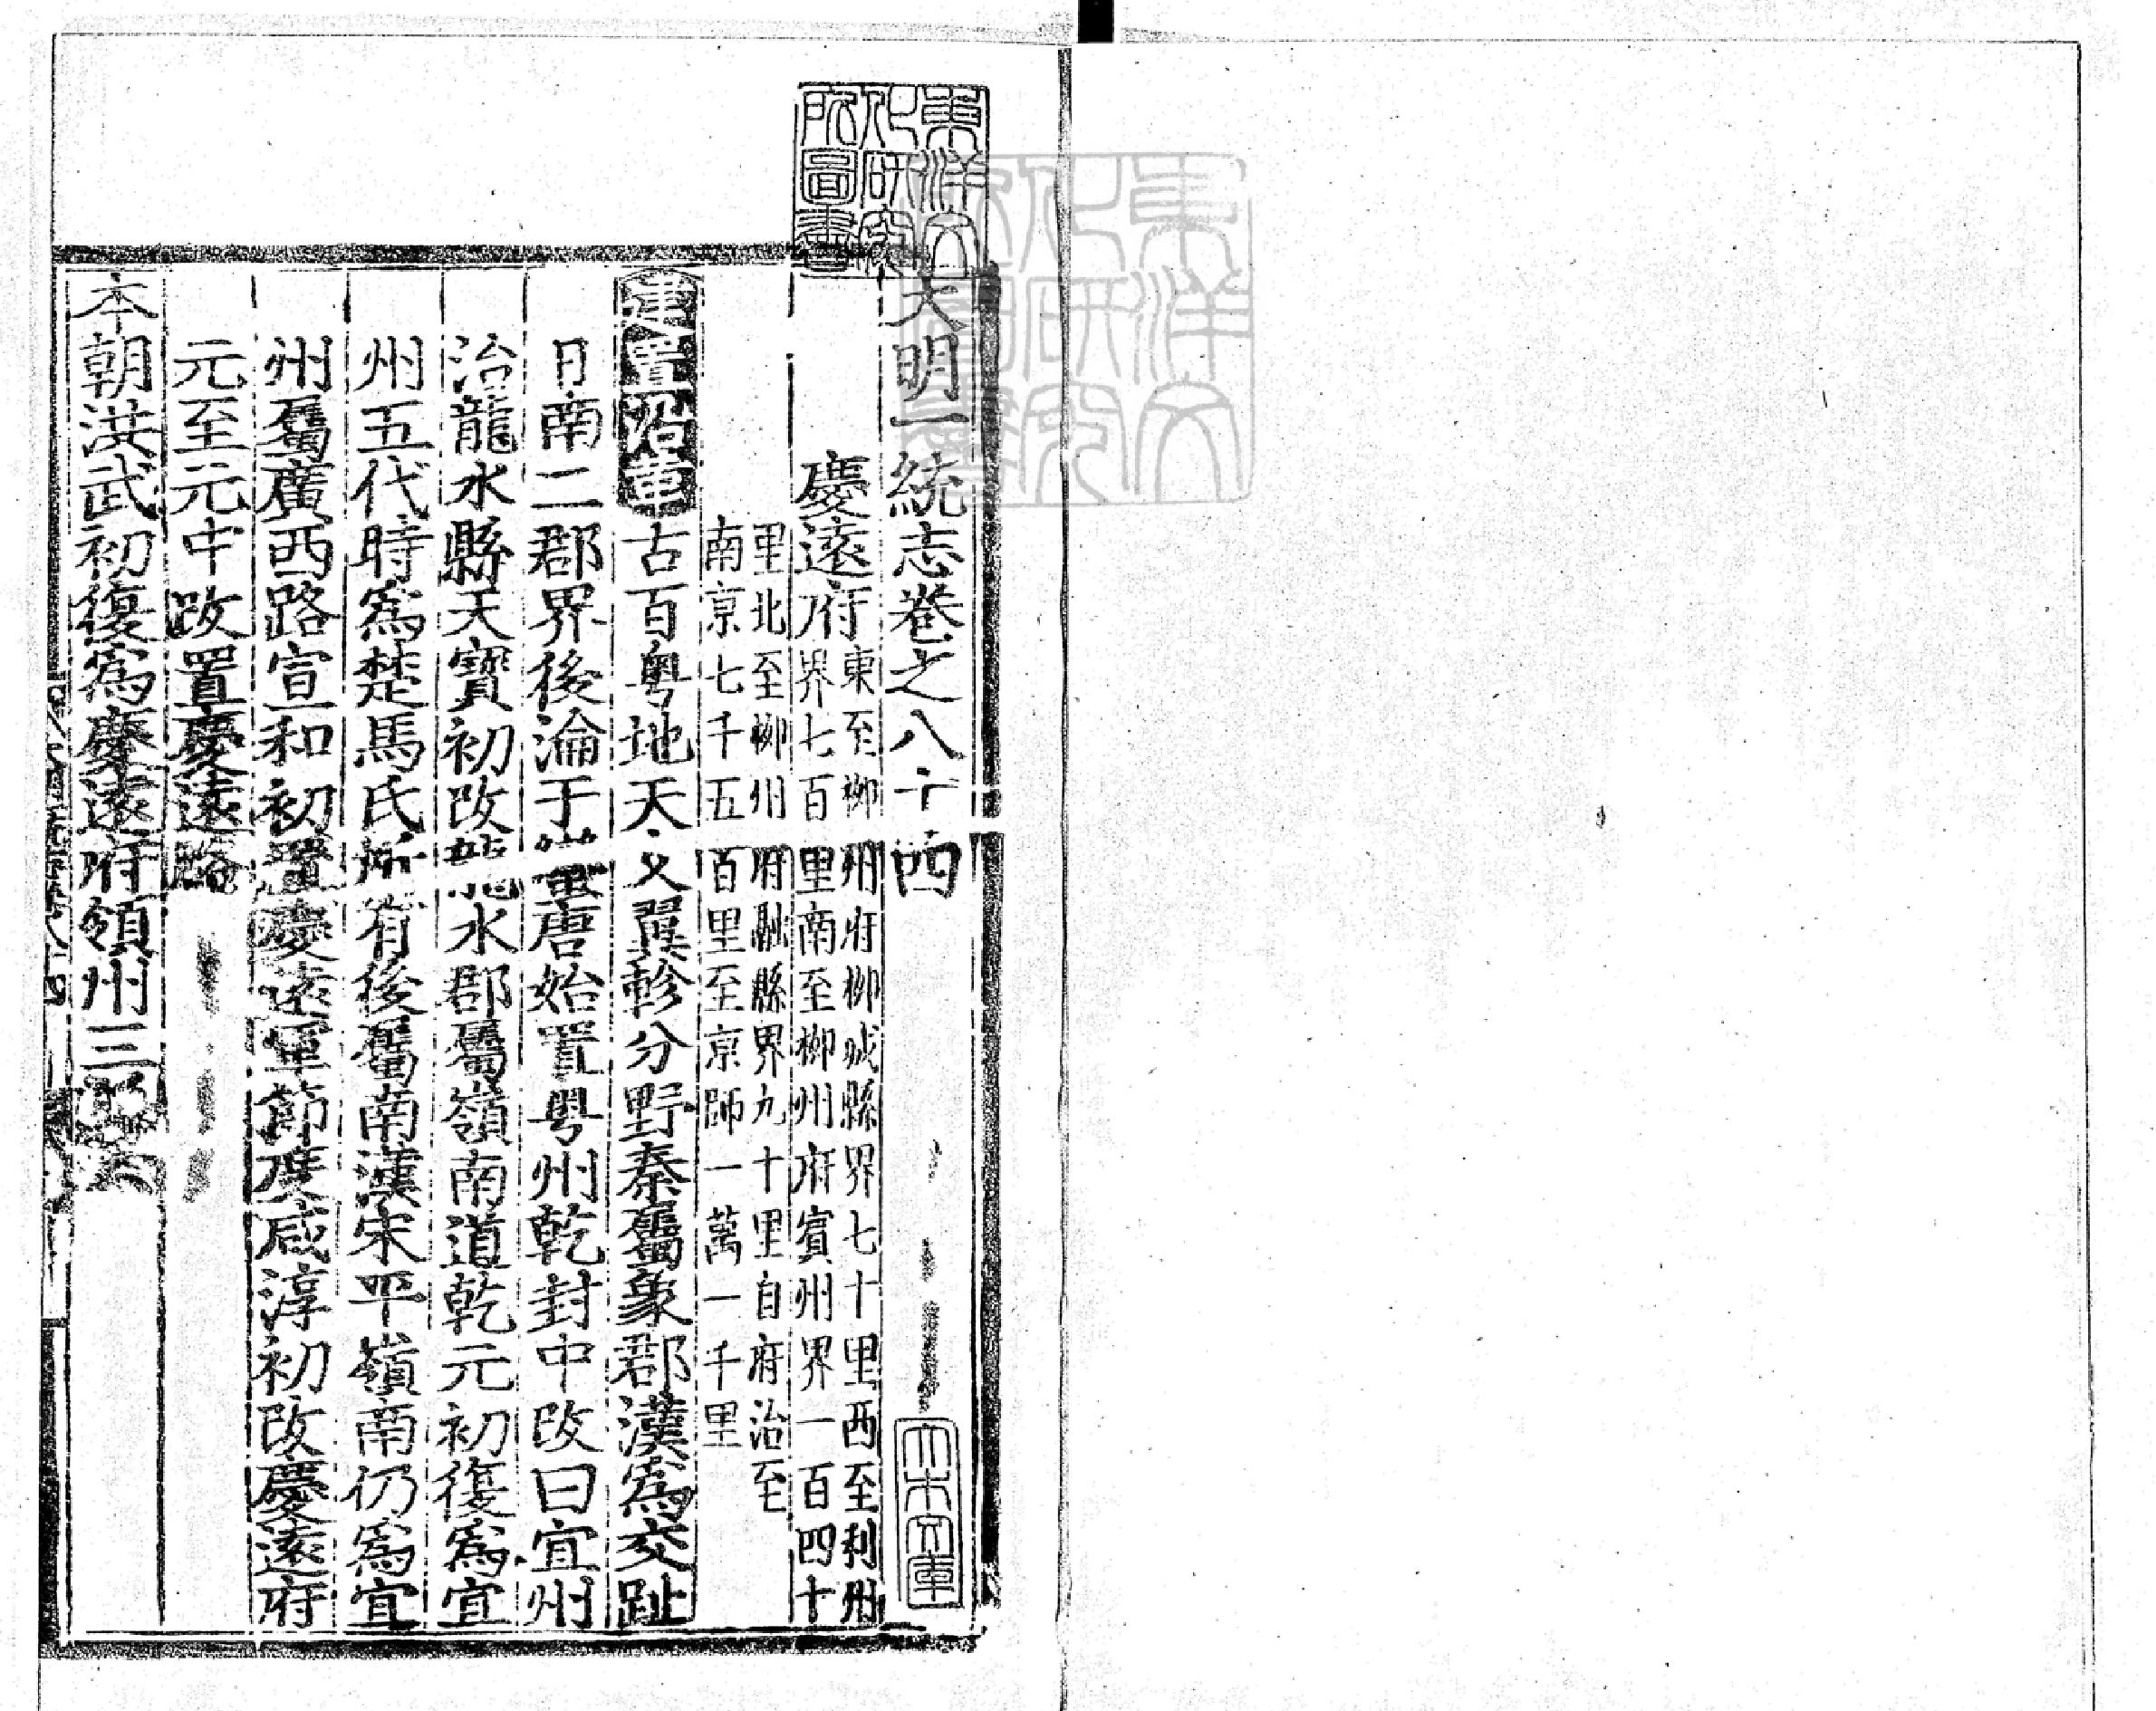 東洋文化研究所圖書
大明一統志卷之八十四
大木文庫
慶遠府東至柳州府柳城縣界七十里西至利州
界七百里南至柳州府賓州界一百四十
里北至柳州府融縣界九十里自府治至
南京七千五百里至京師一萬一千里
建置沿革古百粵地天文翼軫分野秦屬象郡漢爲交趾
日南二郡界後淪于蠻唐始置粵州乾封中改曰宜州
治龍水縣天寶初改龍水郡屬嶺南道乾元初復爲宜
州五代時爲楚馬氏所有後屬南漢宋平嶺南仍爲宜
州屬廣西路宣和初置慶遠軍節度咸淳初改慶遠府
元至元中改置慶遠路
本朝洪武初復爲慶遠府領州三